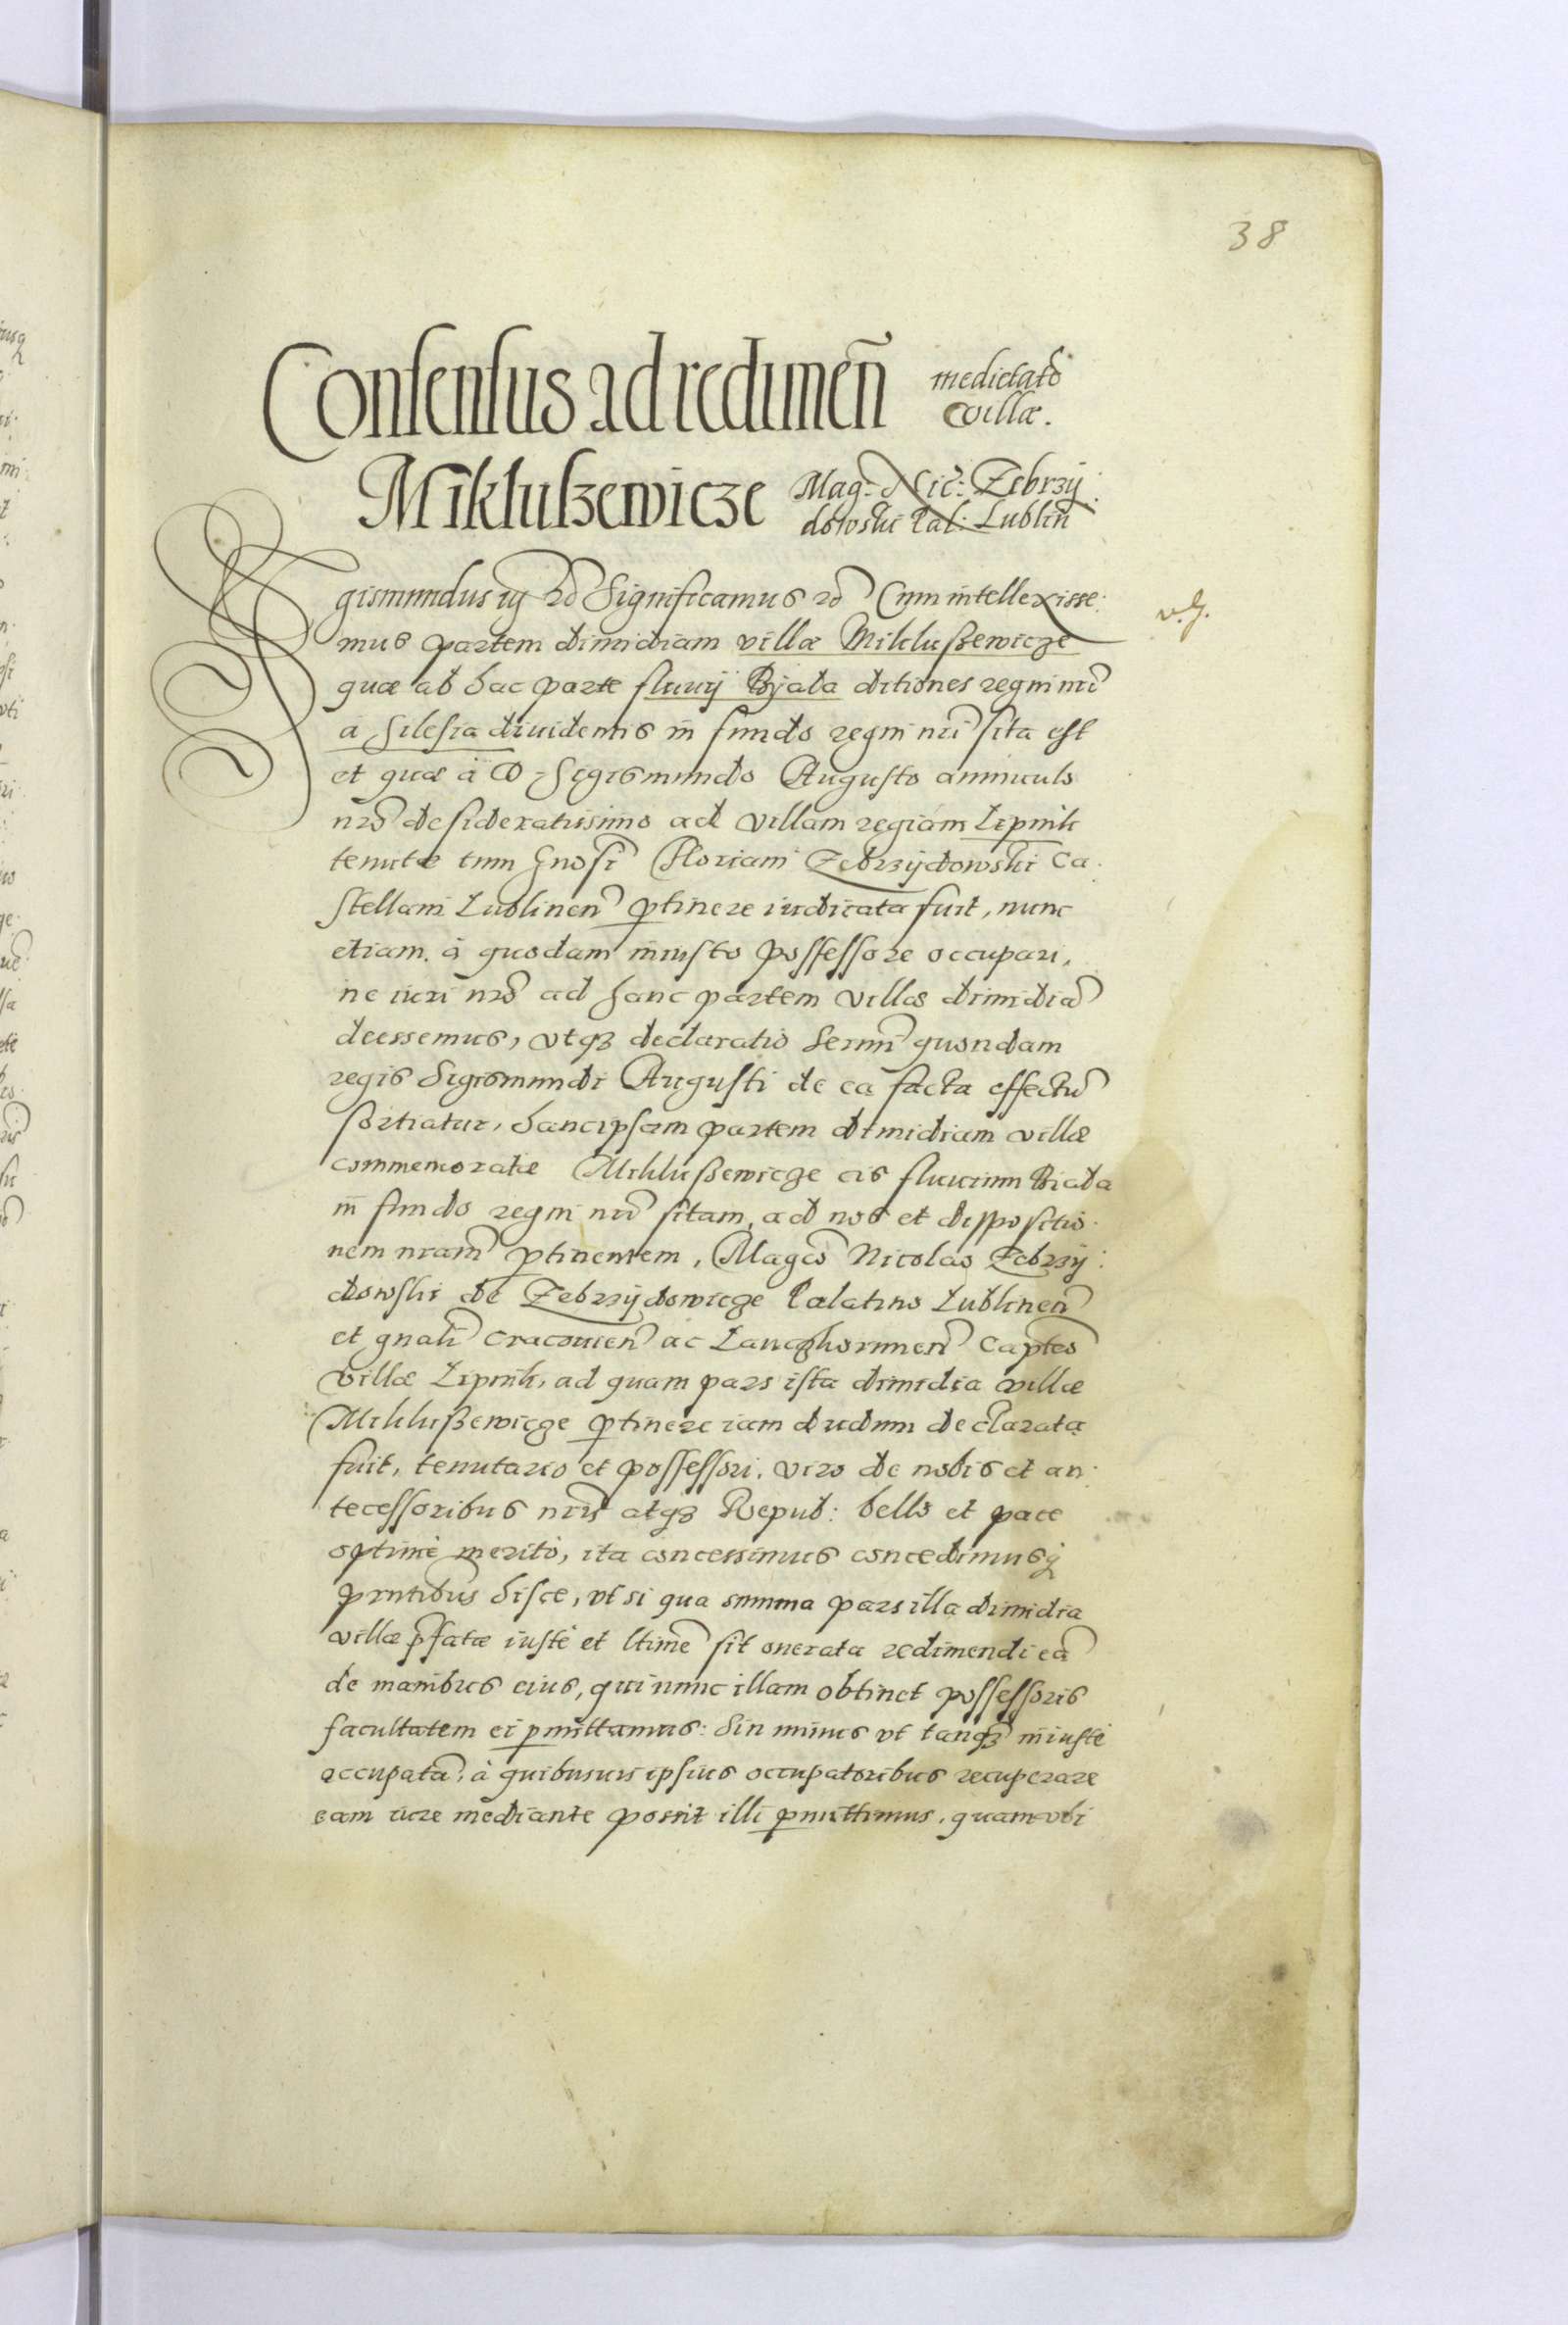 38
Consensus ad redimen̄ medietatẽ
villæ.
Mikłuszewicze Mag: Nic: Zebrzÿ:
dowski Pal: Lublin
Sigismundus iij &c̃ Significamus &c̃ Cum intellexisse:
mus partem dimidiam villæ Mikłußewicze
quæ ab hac parte fluuij Byała ditiones regni nr̃i
a Silesia diuidentis in fundo regni nr̃i sita est
et quæ à D Sigismundo Augusto auunculo
nr̃o desideratissimo ad villam regiam Lipnik
tenutæ tum Gnosi Floriani Zebrzÿdowski Ca:
stellani Lublinen̄ ptinere iudicata fuit, nunc
etiam à quodam iniusto possessore occupari,
ne iuri nr̃o ad hanc partem villæ dimidiã
deessemus, vtqз declaratio Sermi quondam
regis Sigismundi Augusti de ea facta effectũ
sortiatur, hanc ipsam partem dimidiam villæ
commemoratæ Mikłußewicze cis fluuium Biała
in fundo regni nr̃i sitam, ad nos et dispositio:
nem nram̃ ptinentem, Magco Nicolao Zebrzÿ:
dowski de Zebrzÿdowicze Palatino Lublinen̄
et gnali Cracouien̄ ac Lanczhorunen̄ Capteo
villæ Lipnik, ad quam pars ista dimidia villæ
Mikłußewicze ptinere iam dudum declarata
fuit, tenutario et possessori, viro de nobis et an:
tecessoribus nr̃is atqз Repub: bello et pace
optimè meritò, ita concessimus concedimusq
pntibus hisce, vt si qua summa pars illa dimidia
villæ pfatæ iustè et ltimẽ sit onerata redimendi eã
de manibus eius, qui nunc illam obtinet possessoris
facultatem ei pmittamus: Sin minus vt tanqз iniustè
occupatã, à quibusuis ipsius occupatoribus recuperare
eam iure mediante possit illi pmittimus, quam vbi